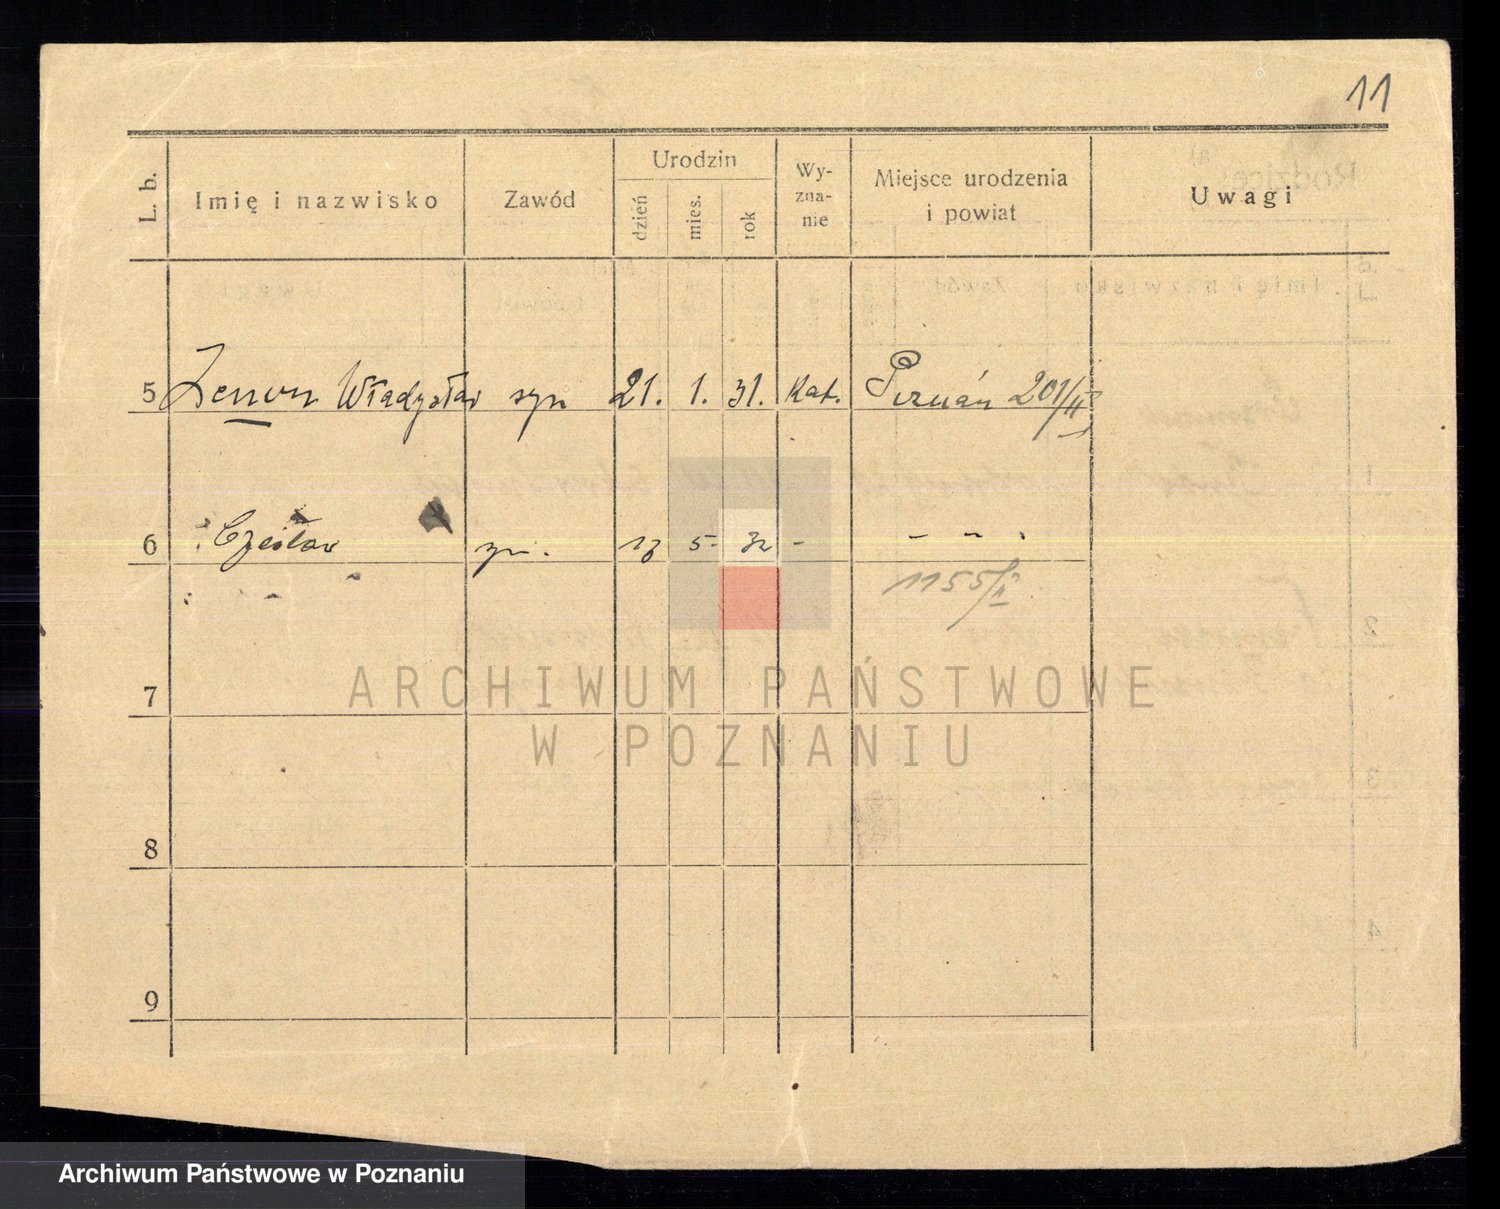 11
L. b.
Imię i nazwisko
Zawód
Urodzin
dzień
mies.
rok
Wy-
zna-
nie
Miejsce urodzenia
i powiat
Uwagi
5 Zenon Władysław syn 21. 1. 31. Kat. Poznań 201/II
6 Czesław syn. 13 5- 32 - - - -
1155/II
7
8
9
ARCHIWUM PAŃSTWOWE
W POZNANIU
Archiwum Państwowe w Poznaniu